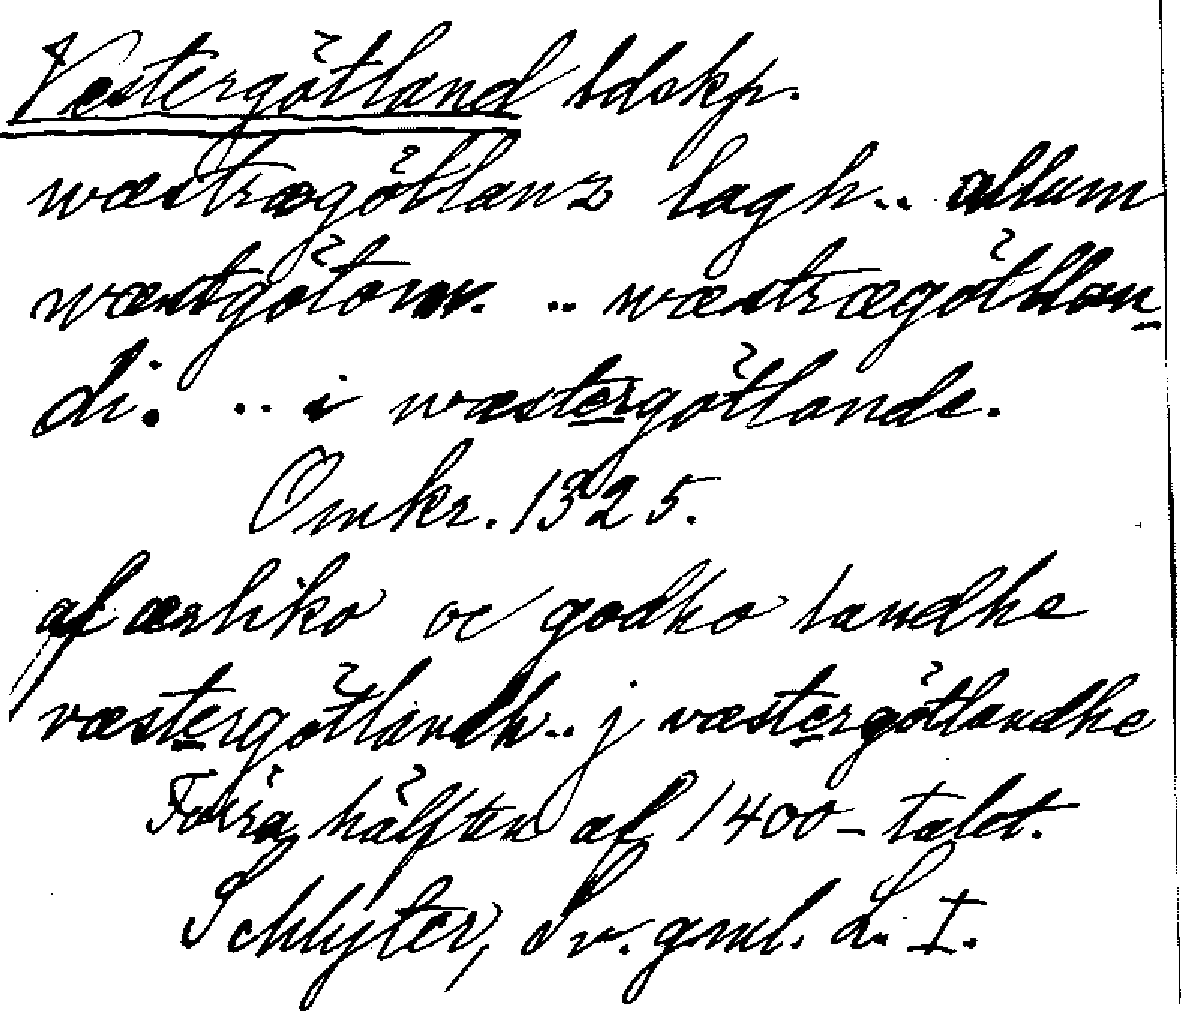 Vestergötland ldskp.
wæstrægötlanz lagh.. allum
wæstgötom. .. wæstrægötlan-
di. .. i wæstergötlande.
Omkr. 1325.
af ærliko oc godho landhe
væstergötlandh.. j væstergötlandhe
Förra hälften af 1400-talet.
Schlyter, Sv. gml. L. I.